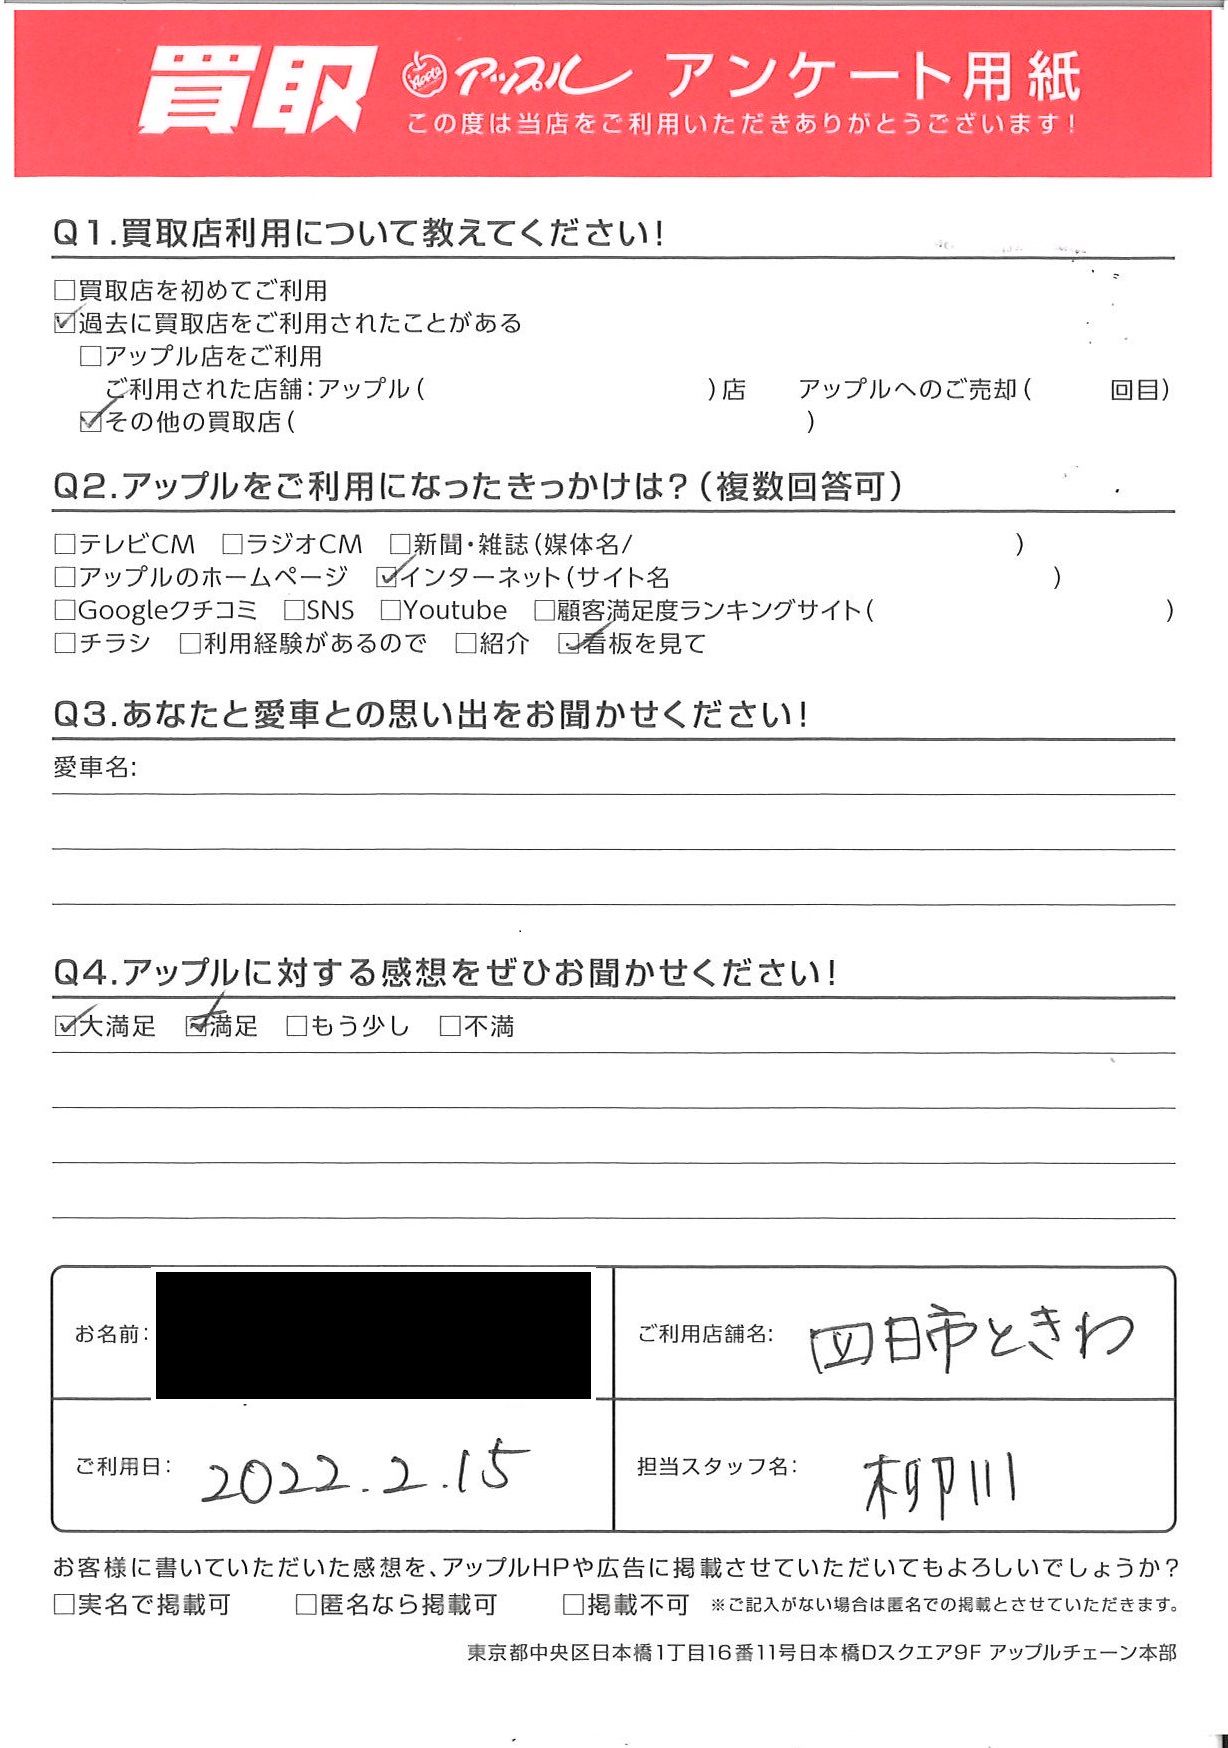 買取 Apple アップル アンケート用紙
この度は当店をご利用いただきありがとうございます!
Q1.買取店利用について教えてください!
□買取店を初めてご利用
☑過去に買取店をご利用されたことがある
□アップル店をご利用
ご利用された店舗:アップル( )店 アップルへのご売却( 回目)
☑その他の買取店( )
Q2.アップルをご利用になったきっかけは?(複数回答可)
□テレビCM □ラジオCM □新聞・雑誌(媒体名/ )
□アップルのホームページ ☑インターネット(サイト名 )
□Googleクチコミ □SNS □Youtube □顧客満足度ランキングサイト( )
□チラシ □利用経験があるので □紹介 ☑看板を見て
Q3.あなたと愛車との思い出をお聞かせください!
愛車名:
Q4.アップルに対する感想をぜひお聞かせください!
☑大満足 ☑満足 □もう少し □不満
お名前:
ご利用店舗名: 四日市ときわ
ご利用日: 2022.2.15
担当スタッフ名: 柳川
お客様に書いていただいた感想を、アップルHPや広告に掲載させていただいてもよろしいでしょうか?
□実名で掲載可 □匿名なら掲載可 □掲載不可 ※ご記入がない場合は匿名での掲載とさせていただきます。
東京都中央区日本橋1丁目16番11号日本橋Dスクエア9F アップルチェーン本部